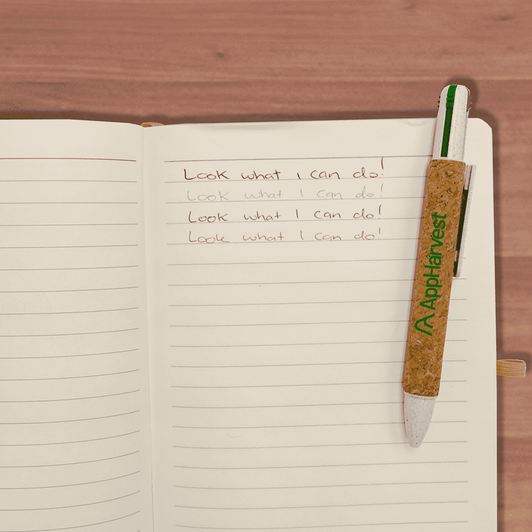 Look what I can do!
Look what I can do!
Look what I can do!
Look what I can do!
AppHarvest